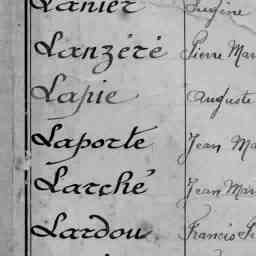 Lanier Eugène
Lanzéré Pierre Mar
Lapie Auguste
Laporte Jean Ma
Larché Jean Mar
Lardou Francis